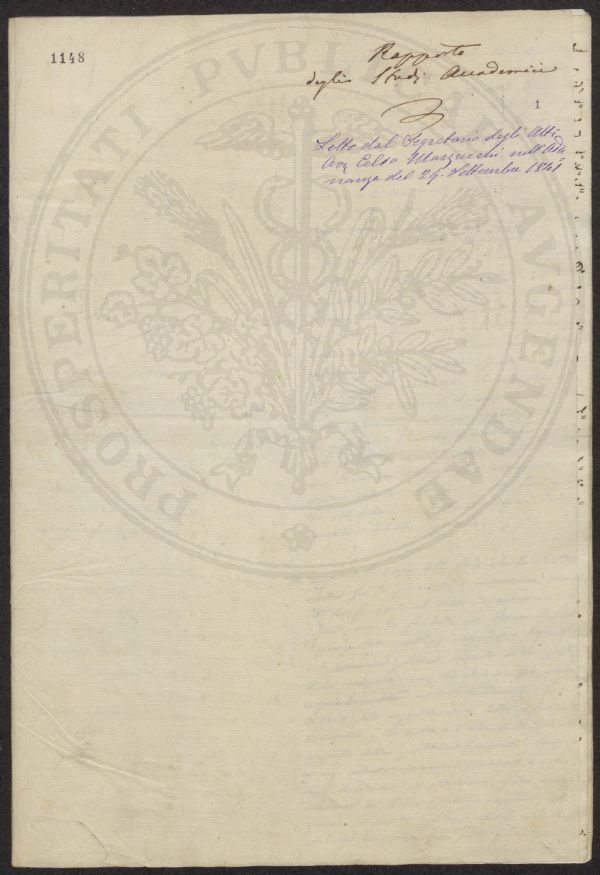 1148
Rapporto
degli Studj Accademici
1
Letto dal Segretario degli Atti
Avv. Celso Marzucchi nell'Adu-
nanza del 29. Settembre 1841
PROSPERITATI PVBLICAE AVGENDAE